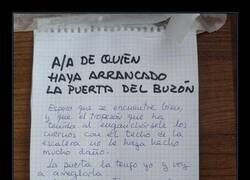 A/A DE QUIEN
HAYA ARRANCADO
LA PUERTA DEL BUZÓN
Espero que se encuentre bien,
y que el tropezón que ha
tenido al enganchársele los
cuernos con el techo de la
escalera no le haya hecho
mucho daño.
La puerta la tengo yo y voy
a arreglarla.